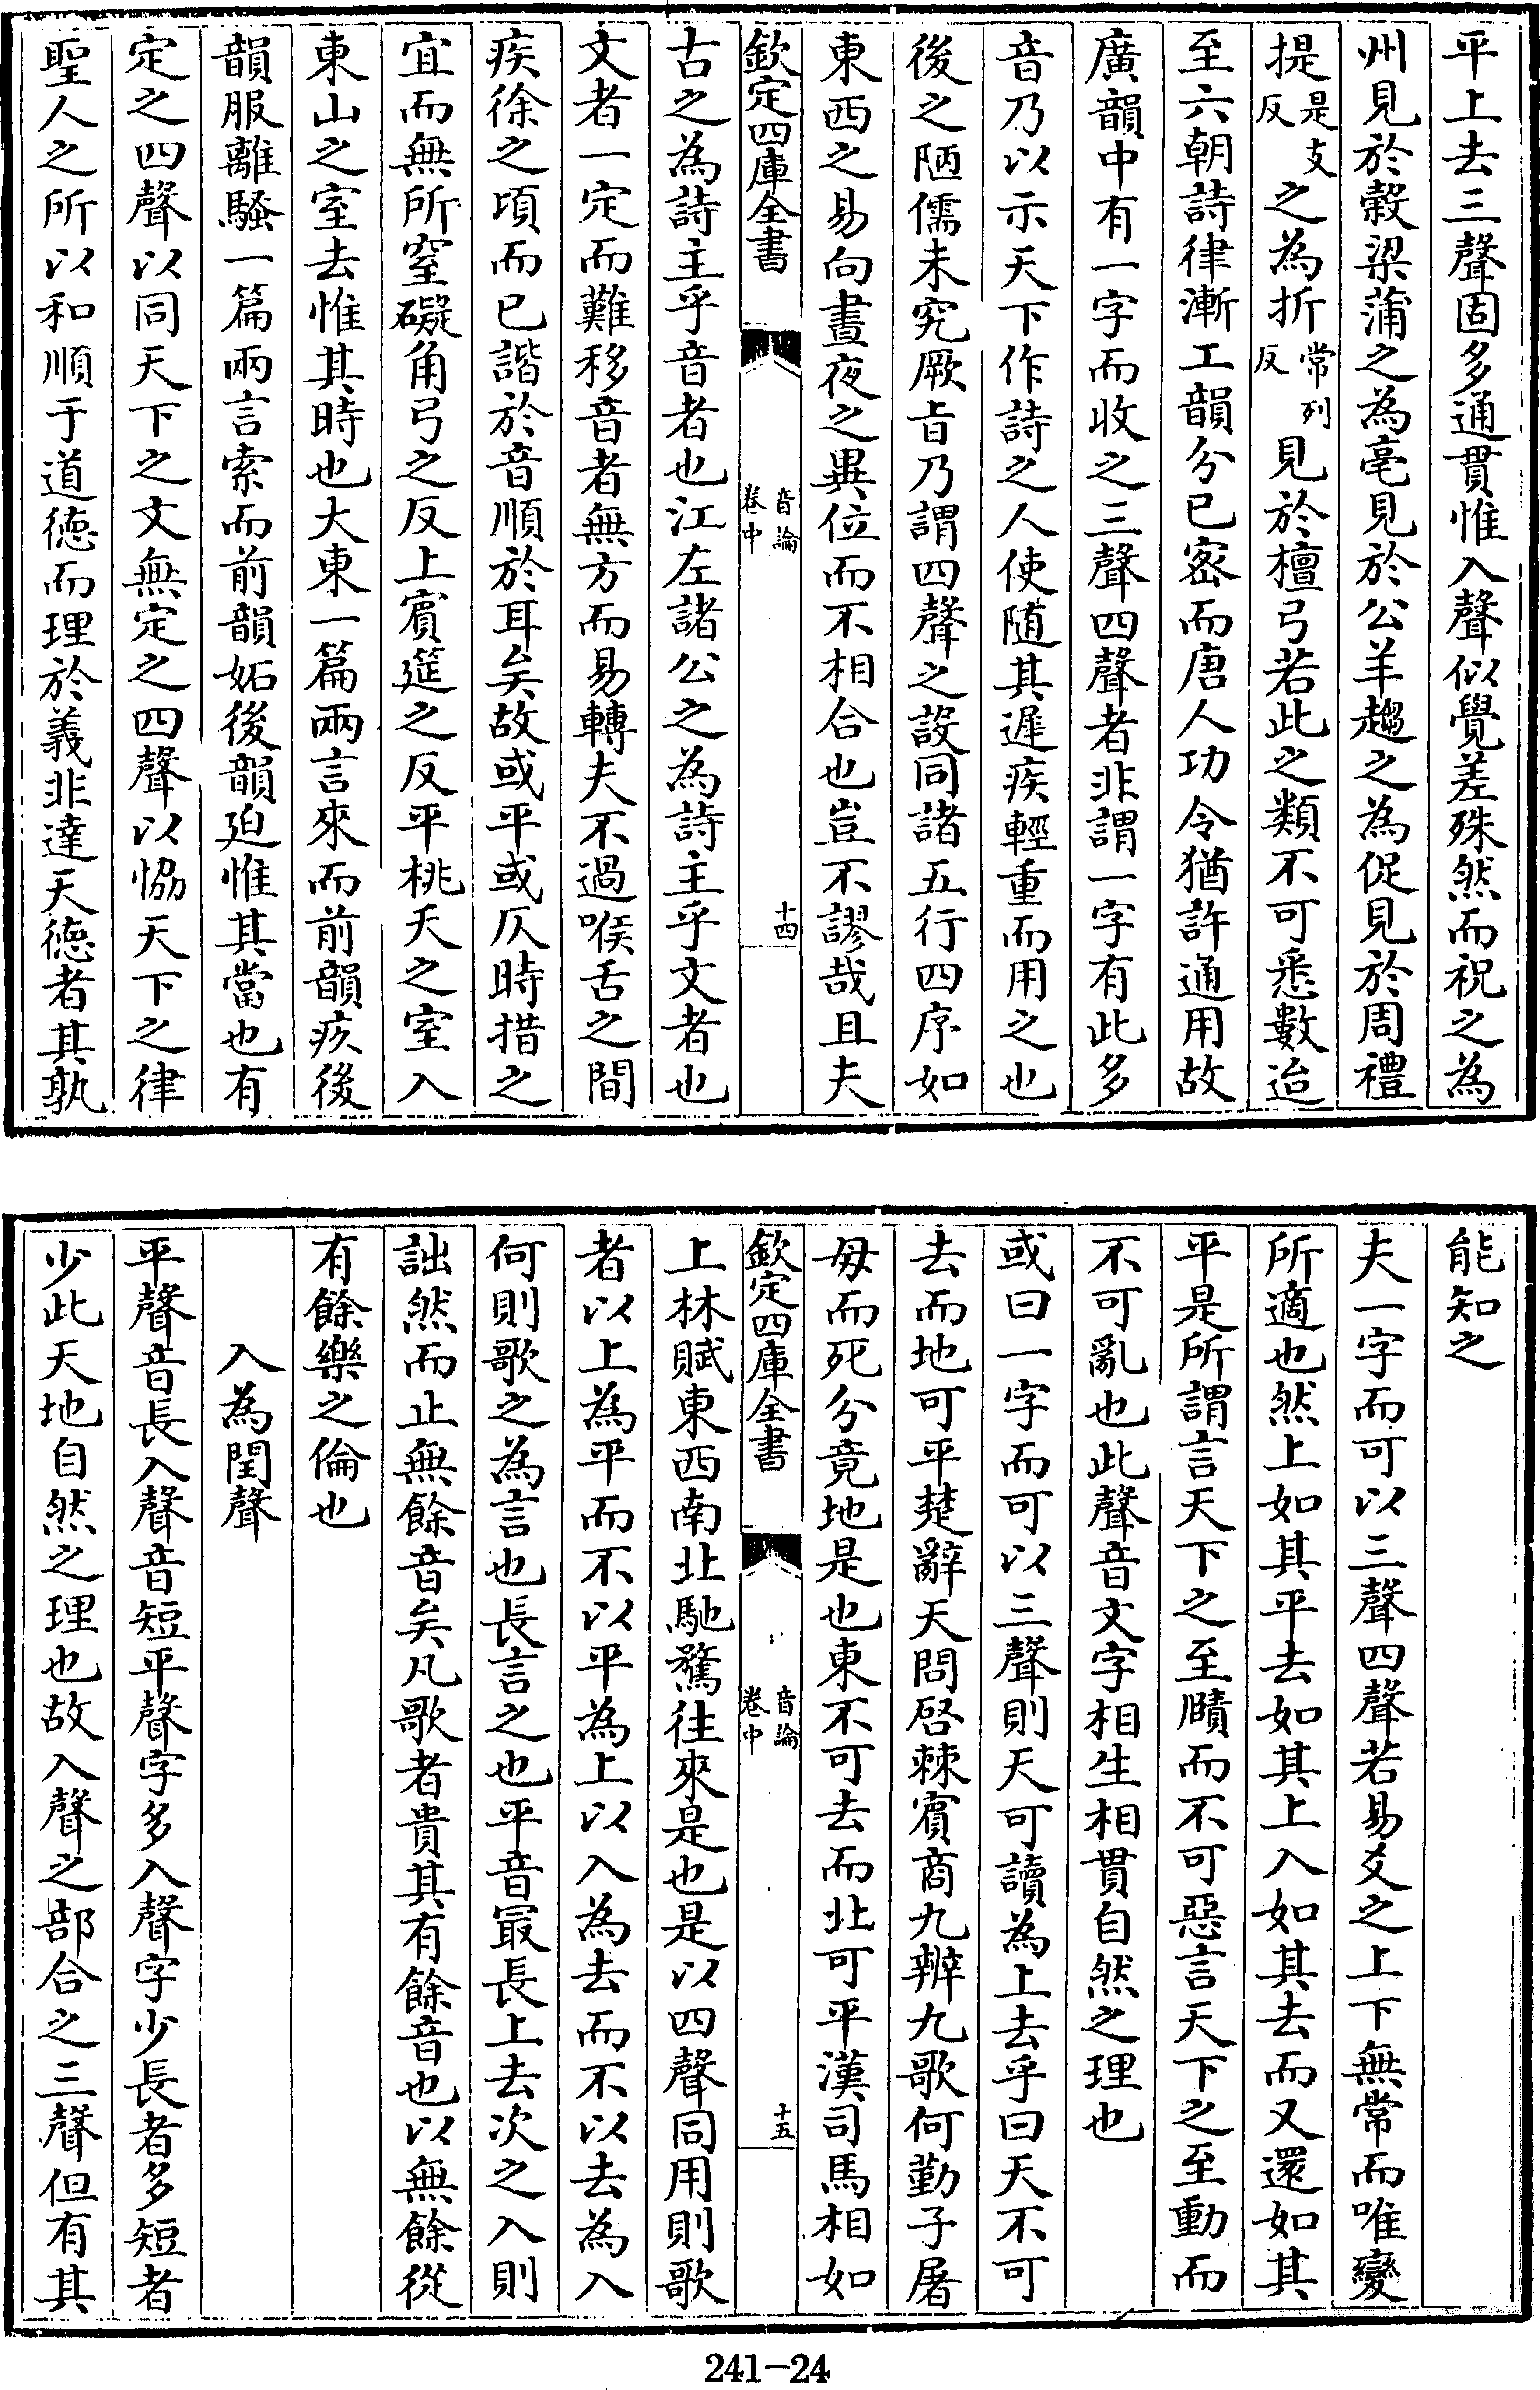 平上去三聲固多通貫惟入聲似覺差殊然而祝之為
州見於穀梁蒲之為亳見於公羊趨之為促見於周禮
提是支反之為折常列反見於檀弓若此之類不可悉數迨
至六朝詩律漸工韻分已密而唐人功令猶許通用故
廣韻中有一字而收之三聲四聲者非謂一字有此多
音乃以示天下作詩之人使随其遲疾輕重而用之也
後之陋儒未究厥㫖乃謂四聲之設同諸五行四序如
東西之易向晝夜之異位而不相合也豈不謬哉且夫
欽定四庫全書
音論
卷中
十四
古之為詩主乎音者也江左諸公之為詩主乎文者也
文者一定而難移音者無方而易轉夫不過喉舌之間
疾徐之頃而已諧於音順於耳矣故或平或仄時措之
宜而無所窒礙角弓之反上賓筵之反平桃夭之室入
東山之室去惟其時也大東一篇兩言來而前韻疚後
韻服離騷一篇兩言索而前韻妬後韻廹惟其當也有
定之四聲以同天下之文無定之四聲以恊天下之律
聖人之所以和順于道德而理於義非達天德者其孰
能知之
夫一字而可以三聲四聲若易爻之上下無常而唯變
所適也然上如其平去如其上入如其去而又還如其
平是所謂言天下之至賾而不可惡言天下之至動而
不可亂也此聲音文字相生相貫自然之理也
或曰一字而可以三聲則天可讀為上去乎曰天不可
去而地可平楚辭天問啓棘賓商九辨九歌何勤子屠
母而死分竟地是也東不可去而北可平漢司馬相如
欽定四庫全書
音論
卷中
十五
上林賦東西南北馳騖往來是也是以四聲同用則歌
者以上為平而不以平為上以入為去而不以去為入
何則歌之為言也長言之也平音最長上去次之入則
詘然而止無餘音矣凡歌者貴其有餘音也以無餘從
有餘樂之倫也
入為閏聲
平聲音長入聲音短平聲字多入聲字少長者多短者
少此天地自然之理也故入聲之部合之三聲但有其
241-24